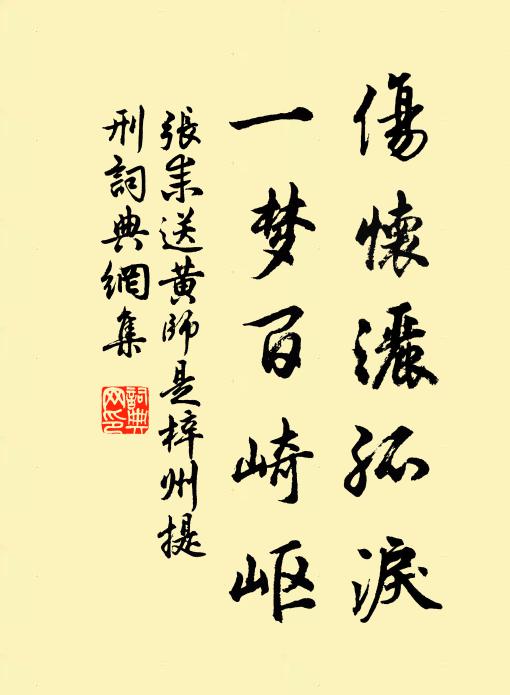 傷懷灑孤淚
一梦百崎岖
張耒送黄師是梓州提
刑詞典網集
詞典
网印